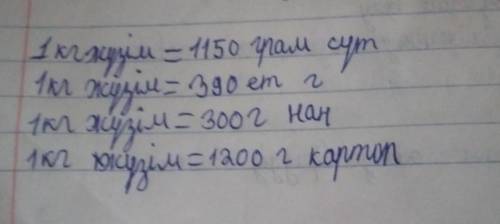 1кг жүзім = 1150 грам сүт
1кг жүзім = 390 ет г
1кг жүзім = 300 г нан
1кг жүзім = 1200 г картоп